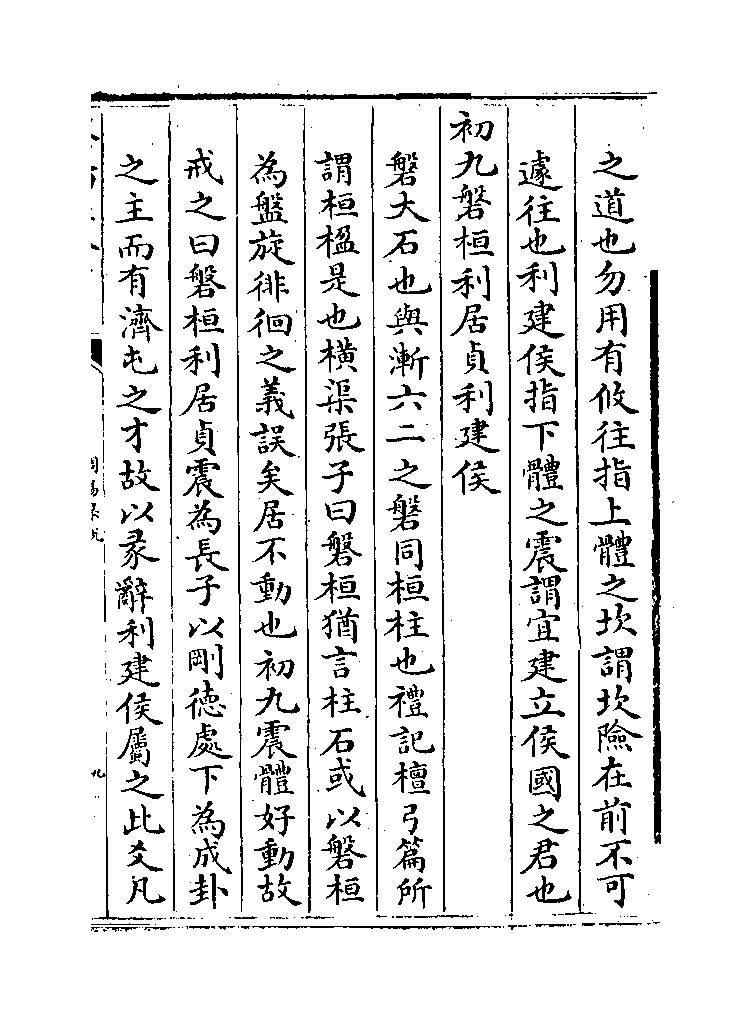 之道也勿用有攸往指上體之坎謂坎險在前不可
遽往也利建侯指下體之震謂宜建立侯國之君也
初九磐桓利居貞利建侯
磐大石也與漸六二之磐同桓柱也禮記檀弓篇所
謂桓楹是也横渠張子曰磐桓猶言柱石或以磐桓
為盤旋徘徊之義誤矣居不動也初九震體好動故
戒之曰磐桓利居貞震為長子以剛德處下為成卦
之主而有濟屯之才故以彖辭利建侯屬之此爻凡
九